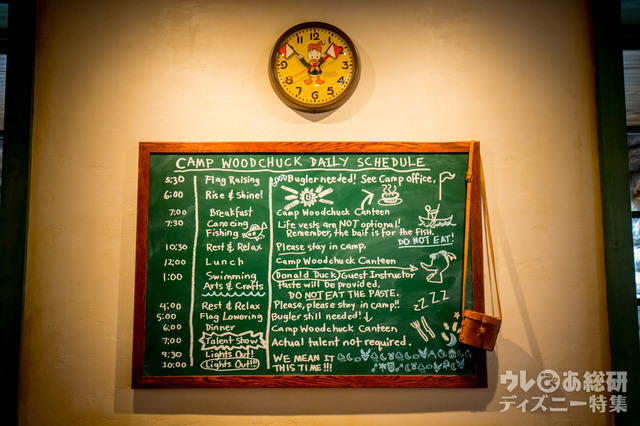 12 1 2 3 4 5 6 7 8 9 10 11
CAMP WOODCHUCK DAILY SCHEDULE
5:30 Flag Raising GOOD Bugler needed! See Camp office.
6:00 Rise & Shine!
7:00 Breakfast Camp Woodchuck Canteen
7:30 Canoeing Life vests are NOT optional!
Fishing Remember, the bait is for the fish.
DO NOT EAT!
10:30 Rest & Relax Please stay in camp.
12:00 Lunch Camp Woodchuck Canteen
1:00 Swimming Donald Duck Guest Instructor
Arts & Crafts Paste will be provided.
DO NOT EAT THE PASTE.
4:00 Rest & Relax Please, please stay in camp!! ZZZ
5:00 Flag Lowering Bugler still needed!
6:00 Dinner Camp Woodchuck Canteen
7:00 Talent Show Actual talent not required.
9:30 Lights Out! WE MEAN IT
10:00 Lights Out!!! THIS TIME!!!
ウレぴあ総研
ディズニー特集